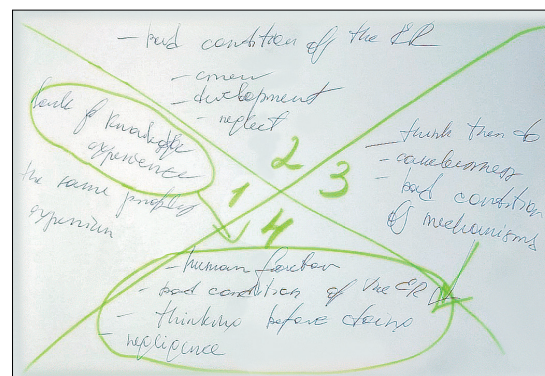 - bad condition of the ER
- crew
- development
- neglect
lack of knowledge
experience
the same
1
2
3
4
- think then do
- carelessness
- bad condition
of mechanisms
- human function
- bad condition of the ER
- thinking before doing
- negligence